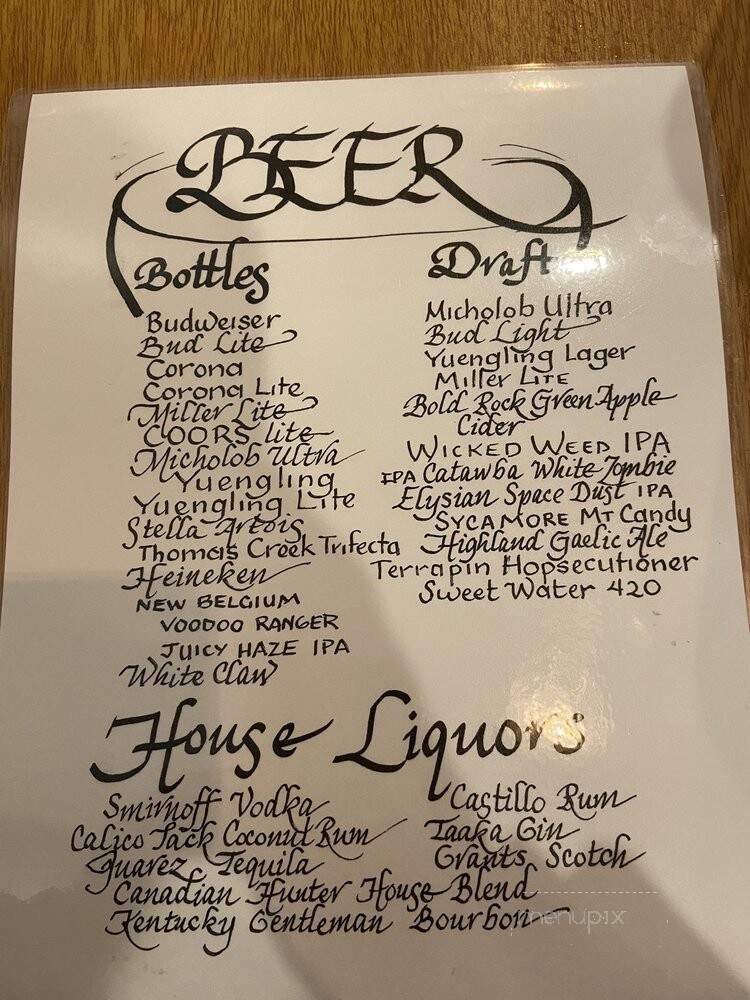 BEER
Bottles
Budweiser
Bud Lite
Corona
Corona Lite
Miller Lite
COORS lite
Micholob Ultra
Yuengling
Yuengling Lite
Stella Artois
Thomas Creek Trifecta
Heineken
NEW BELGIUM
VOODOO RANGER
JUICY HAZE IPA
White Claw
Draft
Micholob Ultra
Bud Light
Yuengling Lager
Miller LITE
Bold Rock Green Apple
Cider
WICKED WEED IPA
IPA Catawba White Zombie
Elysian Space Dust IPA
SYCAMORE MT Candy
Highland Gaelic Ale
Terrapin Hopsecutioner
Sweet Water 420
House Liquors
Smirnoff Vodka
Calico Jack Coconut Rum
Juarez Tequila
Castillo Rum
Taaka Gin
Grants Scotch
Canadian Hunter House Blend
Kentucky Gentleman Bourbon
menupix